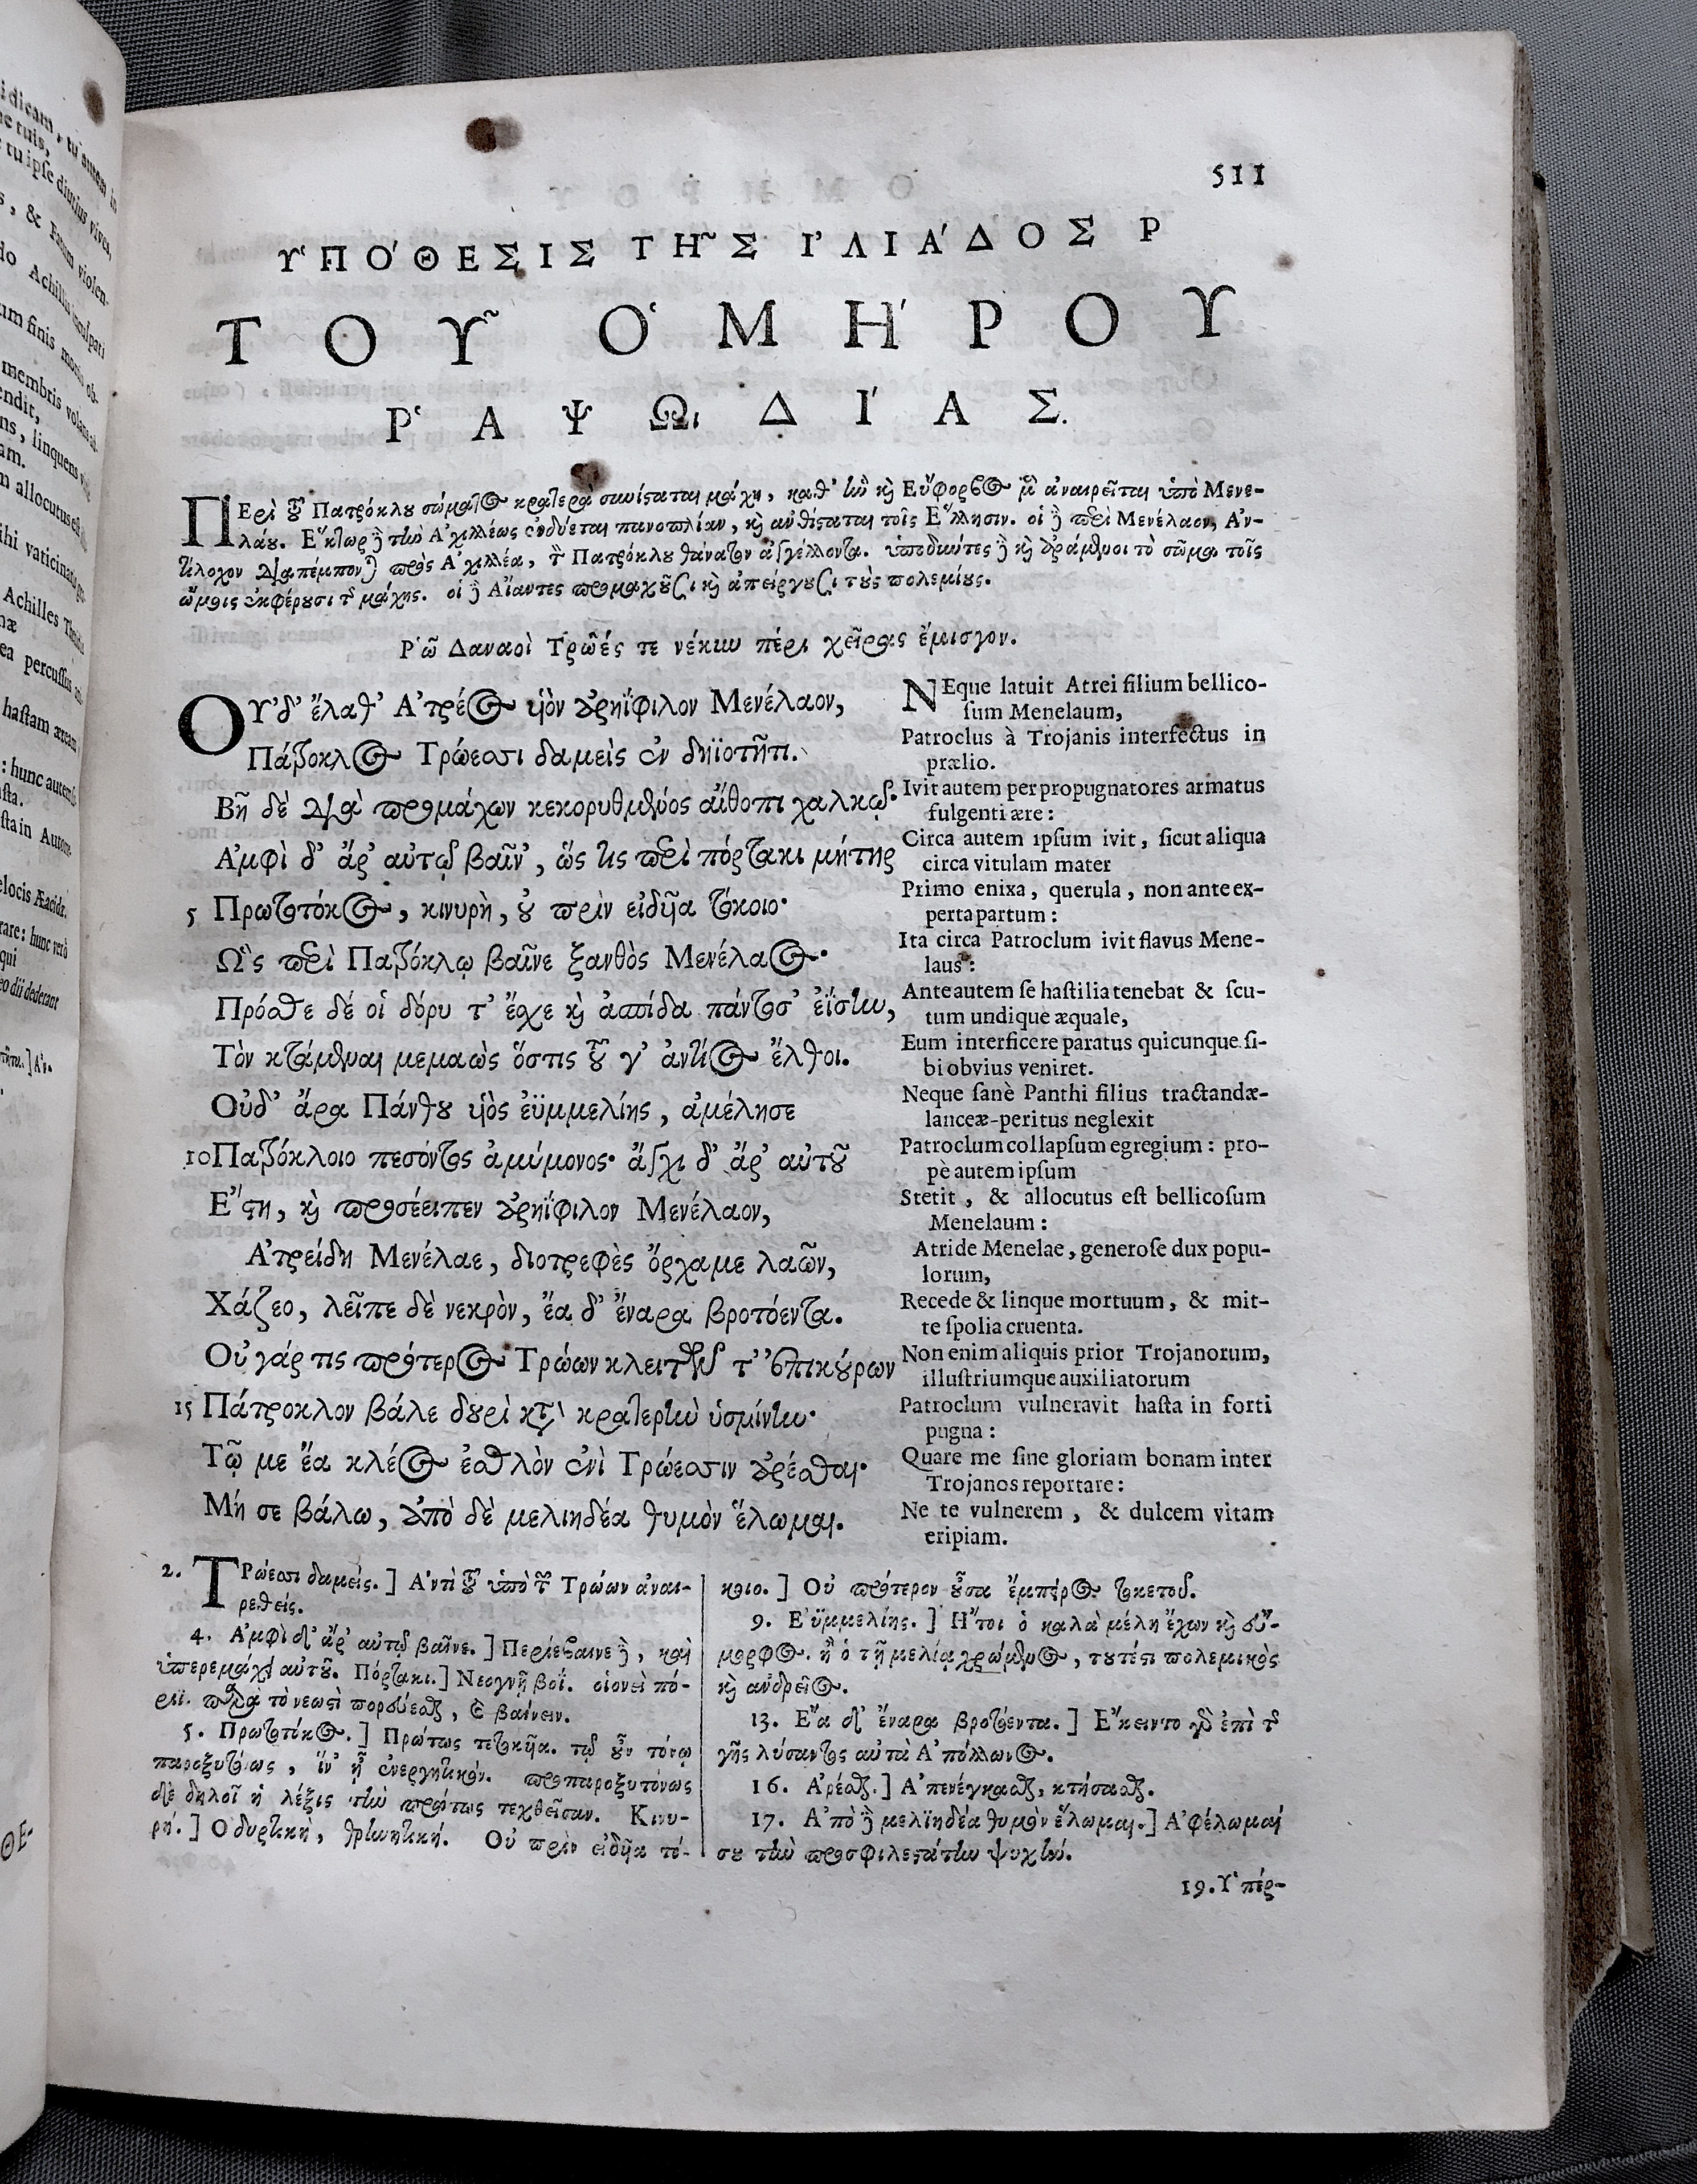 i dicam, tu autem in
ne tuis,
tu ipse diutius vives,
s, & Fatum violen-
do Achillis inculpati
um finis mortis ob-
membris volans ad
endit,
ns, linquens
am.
m allocutus est
ihi vaticinaris
Achilles Thetidis
næ
ea percussus
hastam æream
: hunc autem
sta.
sta in Autome-
elocis Æacidæ.
rare: hunc verò
qui
eo dii dederant
ΘΕ-
511
ΥΠΟΘΕΣΙΣ ΤΗΣ ἸΛΙΆΔΟΣ Ρ
ΤΟΥ͂ ὉΜΉΡΟΥ
ῬΑΨΩΙΔΊΑΣ.
ΠΕρὶ τοῦ Πατρόκλου σώματος κρατερὰ συνίσταται μάχη, καθ' ἣν καὶ Εὔφορβος μὲν ἀναιρεῖται ὑπὸ Μενε-
λάου. Ἕκτωρ δὲ τὴν Ἀχιλλέως ἐνδύεται πανοπλίαν, καὶ ἀνθίσταται τοῖς Ἕλλησιν. οἱ δὲ περὶ Μενέλαον, Ἀν-
τίλοχον διαπέμπονται πρὸς Ἀχιλλέα, τὸν Πατρόκλου θάνατον ἀγγέλλοντα. ὑποδύντες δὲ καὶ ἀράμενοι τὸ σῶμα τοῖς
ὤμοις ἐκφέρουσι τῆς μάχης. οἱ δὲ Αἴαντες προμαχοῦσι καὶ ἀπείργουσι τοὺς πολεμίους.
Ῥῶ Δαναοὶ Τρῶές τε νέκυν πέρι χεῖρας ἔμισγον.
ΟΥ'δ' ἔλαθ' Ἀτρέος υἱὸν ἀρηΐφιλον Μενέλαον,
Πάτροκλος Τρώεσσι δαμεὶς ἐν δηϊοτῆτι.
Βῆ δὲ διὰ προμάχων κεκορυθμένος αἴθοπι χαλκῷ·
Ἀμφὶ δ' ἄρ' αὐτῷ βαῖν', ὥς τις περὶ πόρτακι μήτηρ
5 Πρωτοτόκος, κινυρὴ, οὐ πρὶν εἰδῆα τόκοιο·
Ὣς περὶ Πατρόκλῳ βαῖνε ξανθὸς Μενέλαος·
Πρόσθε δέ οἱ δόρυ τ' ἔχε καὶ ἀσπίδα πάντοσ' ἐΐσην,
Τὸν κτάμεναι μεμαὼς ὅστις τοῦ γ' ἀντίος ἔλθοι.
Οὐδ' ἄρα Πάνθου υἱὸς ἐϋμμελίης, ἀμέλησε
10 Πατρόκλοιο πεσόντος ἀμύμονος· ἄγχι δ' ἄρ' αὐτοῦ
Ἔστη, καὶ προσέειπεν ἀρηΐφιλον Μενέλαον,
Ἀτρείδη Μενέλαε, διοτρεφὲς ὄρχαμε λαῶν,
Χάζεο, λεῖπε δὲ νεκρὸν, ἔα δ' ἔναρα βροτόεντα.
Οὐ γάρ τις πρότερος Τρώων κλειτῶν τ' ἐπικούρων
15 Πάτροκλον βάλε δουρὶ κατὰ κρατερὴν ὑσμίνην·
Τῷ με ἔα κλέος ἐσθλὸν ἐνὶ Τρώεσσιν ἀρέσθαι·
Μή σε βάλω, ἀπὸ δὲ μελιηδέα θυμὸν ἕλωμαι.
NEque latuit Atrei filium bellico-
sum Menelaum,
Patroclus à Trojanis interfectus in
prælio.
Ivit autem per propugnatores armatus
fulgenti ære:
Circa autem ipsum ivit, sicut aliqua
circa vitulam mater
Primo enixa, querula, non ante ex-
perta partum:
Ita circa Patroclum ivit flavus Mene-
laus:
Ante autem se hastilia tenebat & scu-
tum undique æquale,
Eum interficere paratus quicunque si-
bi obvius veniret.
Neque sanè Panthi filius tractandæ-
lanceæ-peritus neglexit
Patroclum collapsum egregium: pro-
pè autem ipsum
Stetit, & allocutus est bellicosum
Menelaum:
Atride Menelae, generose dux popu-
lorum,
Recede & linque mortuum, & mit-
te spolia cruenta.
Non enim aliquis prior Trojanorum,
illustriumque auxiliatorum
Patroclum vulneravit hasta in forti
pugna:
Quare me sine gloriam bonam inter
Trojanos reportare:
Ne te vulnerem, & dulcem vitam
eripiam.
2. ΤΡώεσσι δαμείς.] Ἀντὶ τοῦ ὑπὸ τῶν Τρώων ἀναι-
ρεθείς.
4. Ἀμφὶ δ' ἄρ' αὐτῷ βαῖνε.] Περιέβαινε δὲ, καὶ
ὑπερεμάχει αὐτοῦ. Πόρτακι.] Νεογνῇ βοΐ. οἱονεὶ πό-
ρις. παρὰ τὸ νεωστὶ πορεύεσθαι, καὶ βαίνειν.
5. Πρωτοτόκος.] Πρώτως τετοκῆα. τῷ οὖν τόνῳ
παροξυτόνως, ἵν' ᾖ ἐνεργητικόν. προπαροξυτόνως
δὲ δηλοῖ ἡ λέξις τὴν πρώτως τεχθεῖσαν. Κινυ-
ρή.] Ὀδυρτικὴ, θρηνητική. Οὐ πρὶν εἰδῆα τό-
κοιο.] Οὐ πρότερον οὖσα ἔμπειρος τοκετοῦ.
9. Ἐϋμμελίης.] Ἤτοι ὁ καλὰ μέλη ἔχων καὶ εὔ-
μορφος. ἢ ὁ τῇ μελίᾳ χρώμενος, τουτέστι πολεμικὸς
καὶ ἀνδρεῖος.
13. Ἔα δ' ἔναρα βροτόεντα.] Ἔκειντο γὰρ ἐπὶ τῆς
γῆς λύσαντος αὐτὰ Ἀπόλλωνος.
16. Ἀρέσθαι.] Ἀπενέγκασθαι, κτήσασθαι.
17. Ἀπὸ δὲ μελιηδέα θυμὸν ἕλωμαι.] Ἀφέλωμαί
σου τὴν προσφιλεστάτην ψυχήν.
19. Ὑπέρ-